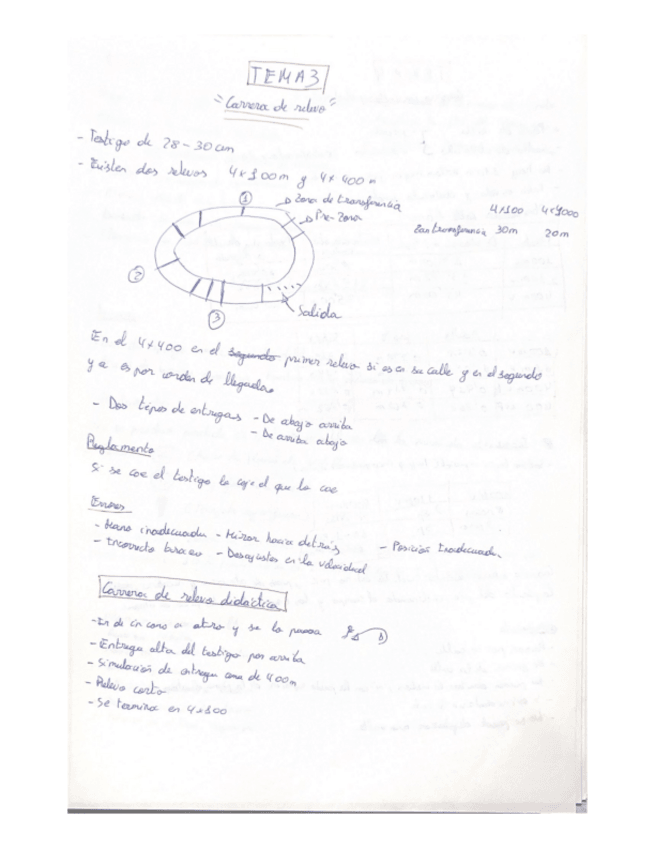 TEMA 3
"Carrera de relevo"
- Testigo de 28-30cm
- Existen dos relevos 4x100m y 4x400m
① Zona de transferencia
Pre-Zona
4x100 4x1000
Zon transferencia 30m 20m
②
③ Salida
En el 4x400 en el segundo primer relevo si es en su calle y en el segundo
ya es por orden de llegada.
- Dos tipos de entregas - De abajo arriba
- De arriba abajo
Reglamento
Si se cae el testigo lo coje el que lo cae
Errores
- Mano inadecuada - Mirar hacia detrás - Posición Inadecuada
- Incorrecto braceo - Desajustes en la velocidad
Carrera de relevo didáctica
- Ir de un cono a otro y se lo pasa
- Entrega alta del testigo por arriba
- Simulación de entrega de 400m
- Relevo corto
- Se termina en 4x100